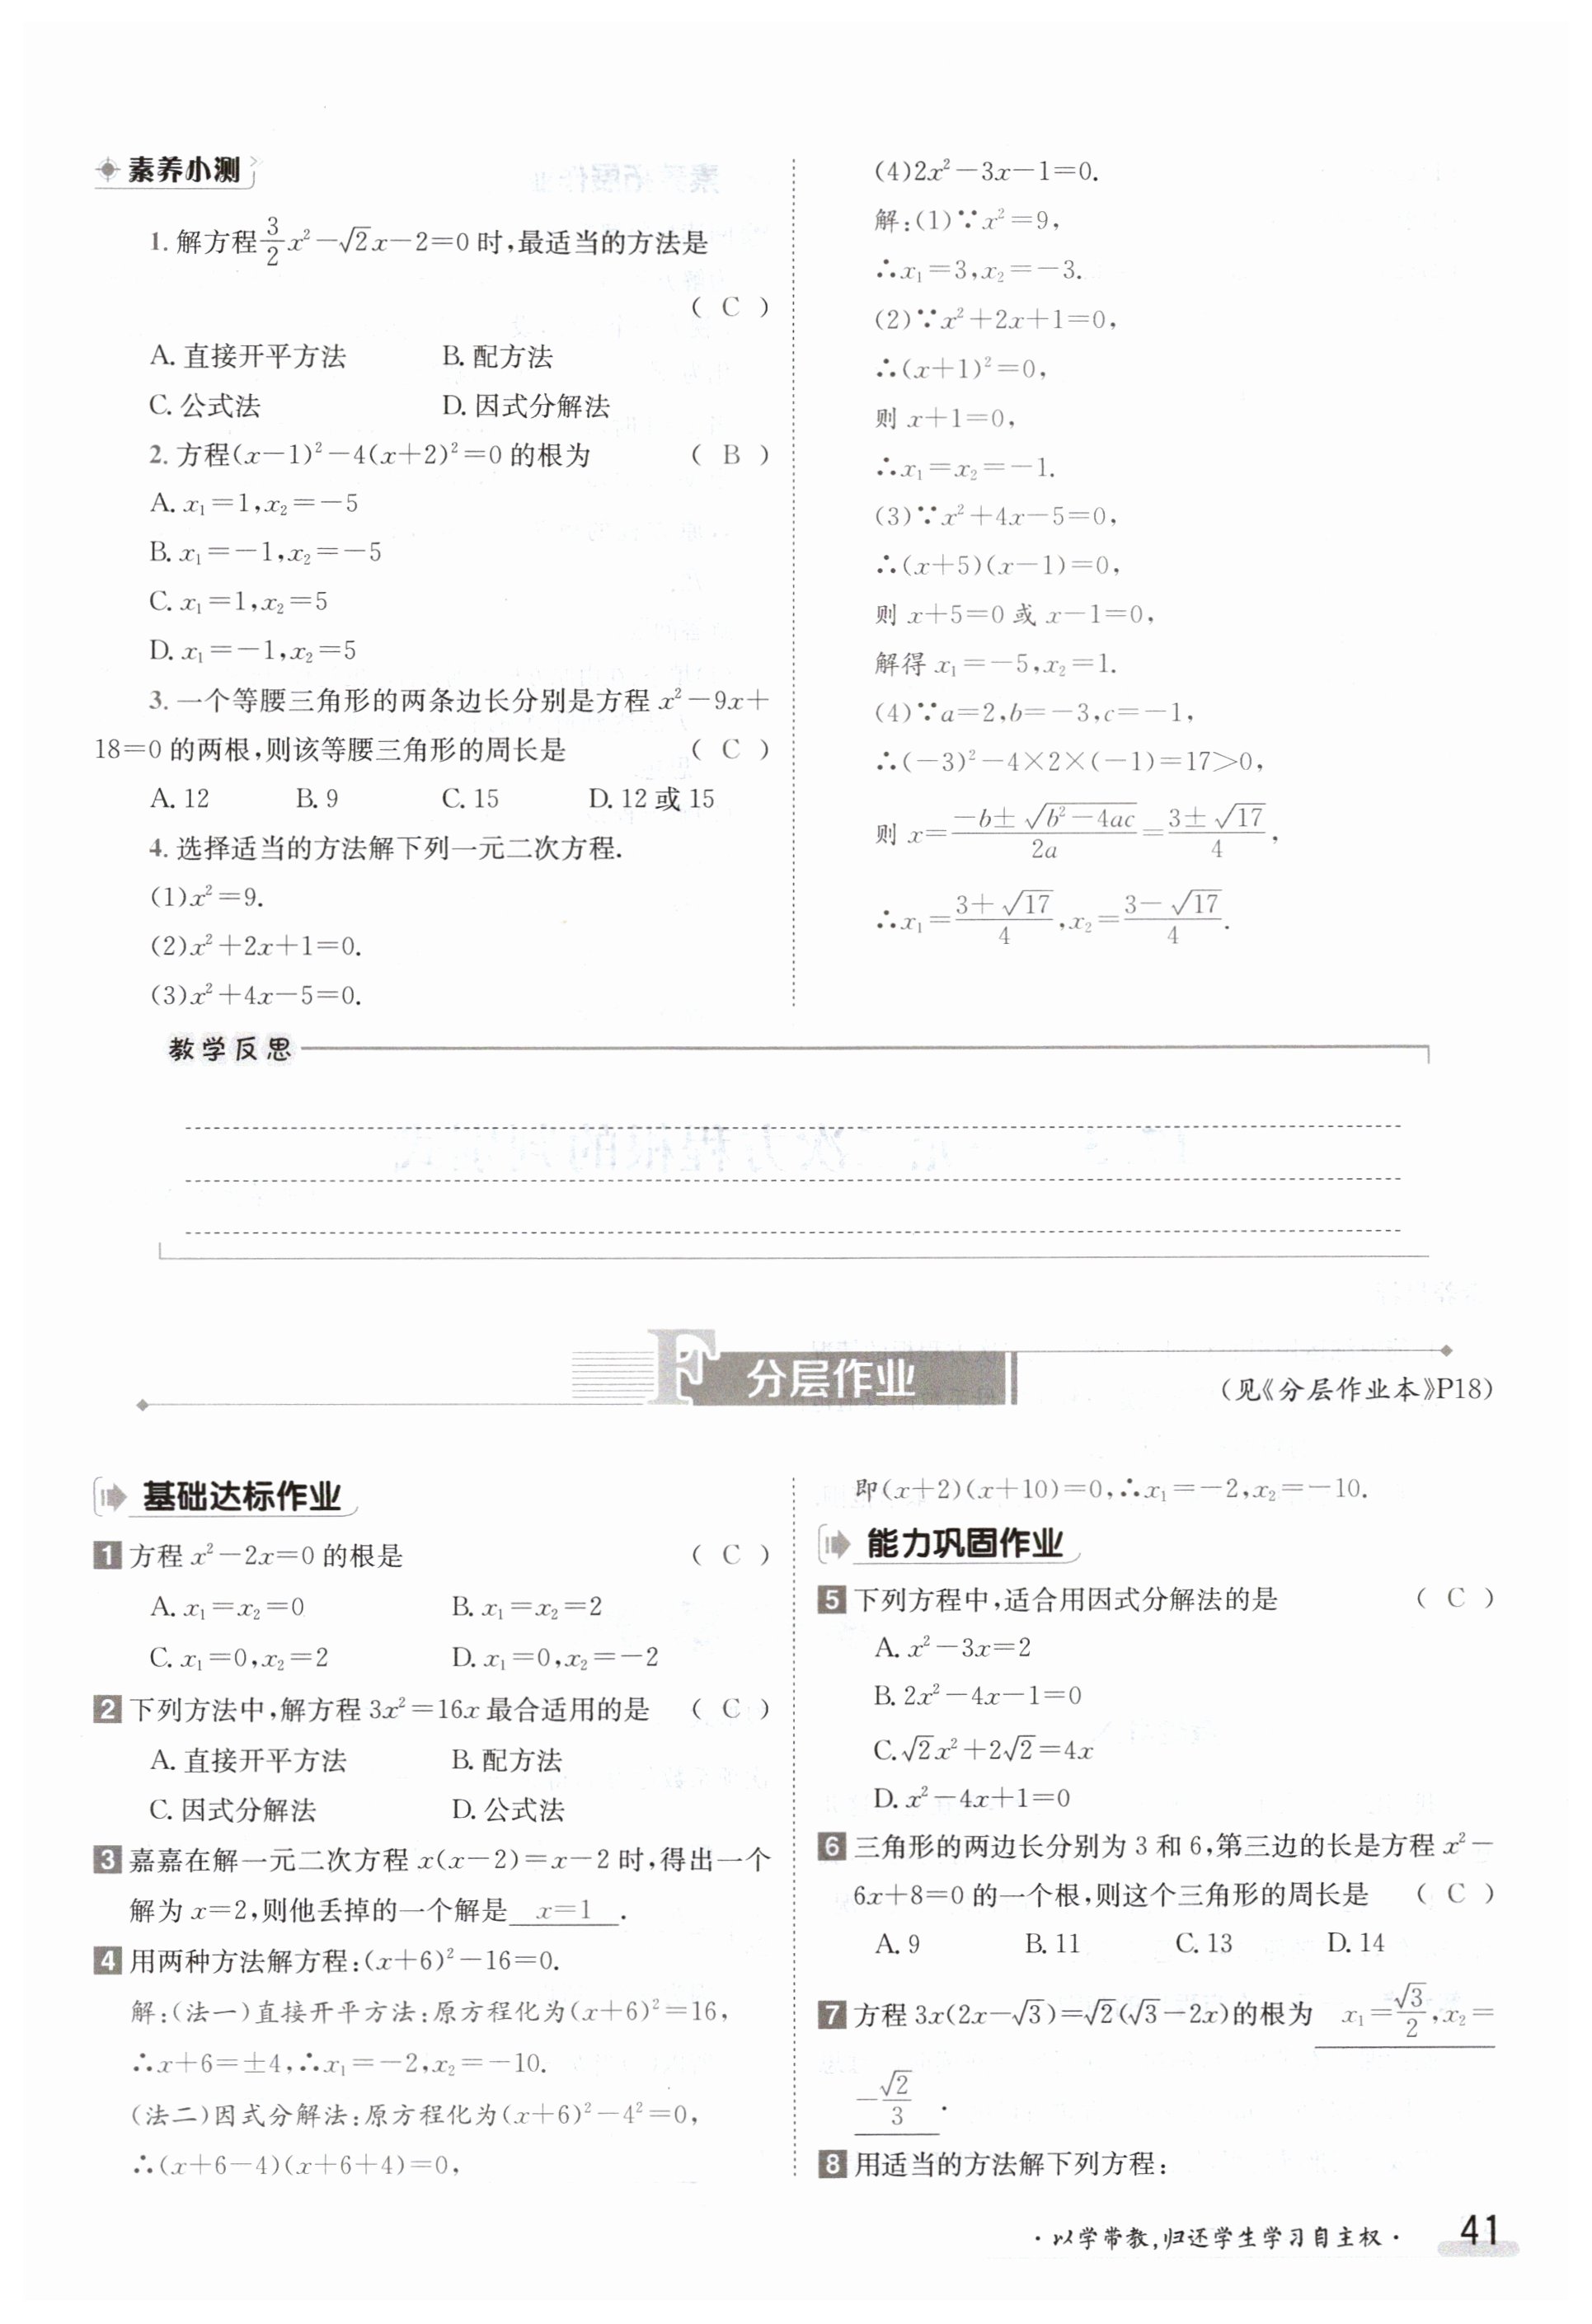 素养小测
1. 解方程$\frac{3}{2}x^2-\sqrt{2}x-2=0$时,最适当的方法是
( C )
A. 直接开平方法 B. 配方法
C. 公式法 D. 因式分解法
2. 方程$(x-1)^2-4(x+2)^2=0$的根为 ( B )
A. $x_1=1,x_2=-5$
B. $x_1=-1,x_2=-5$
C. $x_1=1,x_2=5$
D. $x_1=-1,x_2=5$
3. 一个等腰三角形的两条边长分别是方程 $x^2-9x+$
$18=0$ 的两根,则该等腰三角形的周长是 ( C )
A. 12 B. 9 C. 15 D. 12 或 15
4. 选择适当的方法解下列一元二次方程.
(1)$x^2=9$.
(2)$x^2+2x+1=0$.
(3)$x^2+4x-5=0$.
(4)$2x^2-3x-1=0$.
解:(1)∵$x^2=9$,
∴$x_1=3,x_2=-3$.
(2)∵$x^2+2x+1=0$,
∴$(x+1)^2=0$,
则 $x+1=0$,
∴$x_1=x_2=-1$.
(3)∵$x^2+4x-5=0$,
∴$(x+5)(x-1)=0$,
则 $x+5=0$ 或 $x-1=0$,
解得 $x_1=-5,x_2=1$.
(4)∵$a=2,b=-3,c=-1$,
∴$(-3)^2-4×2×(-1)=17>0$,
则 $x=\frac{-b±\sqrt{b^2-4ac}}{2a}=\frac{3±\sqrt{17}}{4}$,
∴$x_1=\frac{3+\sqrt{17}}{4},x_2=\frac{3-\sqrt{17}}{4}$.
教学反思
F 分层作业
(见《分层作业本》P18)
基础达标作业
1 方程 $x^2-2x=0$ 的根是 ( C )
A. $x_1=x_2=0$ B. $x_1=x_2=2$
C. $x_1=0,x_2=2$ D. $x_1=0,x_2=-2$
2 下列方法中,解方程 $3x^2=16x$ 最合适用的是 ( C )
A. 直接开平方法 B. 配方法
C. 因式分解法 D. 公式法
3 嘉嘉在解一元二次方程 $x(x-2)=x-2$ 时,得出一个
解为 $x=2$,则他丢掉的一个解是 $x=1$ .
4 用两种方法解方程:$(x+6)^2-16=0$.
解:(法一)直接开平方法:原方程化为$(x+6)^2=16$,
∴$x+6=±4$,∴$x_1=-2,x_2=-10$.
(法二)因式分解法:原方程化为$(x+6)^2-4^2=0$,
∴$(x+6-4)(x+6+4)=0$,
即$(x+2)(x+10)=0$,∴$x_1=-2,x_2=-10$.
能力巩固作业
5 下列方程中,适合用因式分解法的是 ( C )
A. $x^2-3x=2$
B. $2x^2-4x-1=0$
C. $\sqrt{2}x^2+2\sqrt{2}=4x$
D. $x^2-4x+1=0$
6 三角形的两边长分别为 3 和 6,第三边的长是方程 $x^2-$
$6x+8=0$ 的一个根,则这个三角形的周长是 ( C )
A. 9 B. 11 C. 13 D. 14
7 方程 $3x(2x-\sqrt{3})=\sqrt{2}(\sqrt{3}-2x)$的根为 $x_1=\frac{\sqrt{3}}{2},x_2=$
$-\frac{\sqrt{2}}{3}$ .
8 用适当的方法解下列方程:
· 以学带教,归还学生学习自主权 · 41